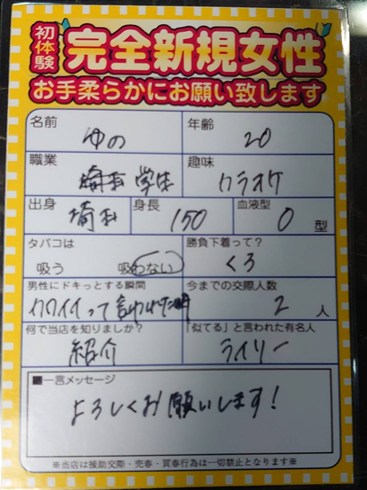 初体験
完全新規女性
お手柔らかにお願い致します
名前 ゆの 年齢 20
職業 学生 趣味 カラオケ
出身 埼玉 身長 150 血液型 O 型
タバコは 勝負下着って?
吸う 吸わない くろ
男性にドキっとする瞬間 今までの交際人数
カワイイって言われた時 2 人
何で当店を知りましたか? 「似てる」と言われた有名人
紹介 ライリー
■一言メッセージ
よろしくお願いします!
※当店は援助交際・売春・買春行為は一切禁止となります※